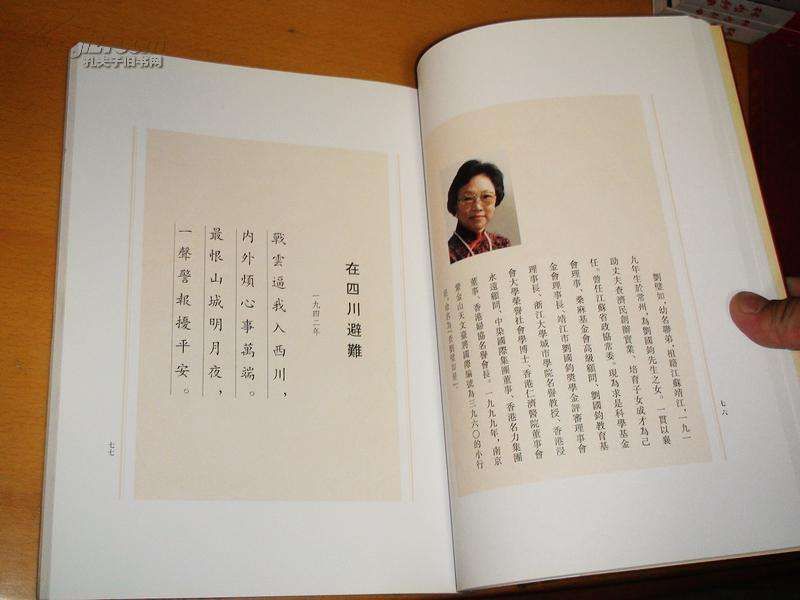 劉璧如，幼名聯弟，祖籍江蘇靖江，一九一
九年生於常州，為劉國鈞先生之女。一貫以襄
助丈夫查濟民創辦實業、培育子女成才為己
任。曾任江蘇省政協常委。現為求是科學基金
會理事、桑麻基金會高級顧問、劉國鈞教育基
金會理事長、靖江市劉國鈞獎學金評審理事會
理事長、浙江大學城市學院名譽教授、香港浸
會大學榮譽社會學博士、香港仁濟醫院董事會
永遠顧問、中染國際集團董事、香港名力集團
董事、香港婦協名譽會長。一九九九年，南京
紫金山天文臺將國際編號為三九六〇的小行
七六
在四川避難
一九四二年
戰雲逼我入西川，
內外煩心事萬端。
最恨山城明月夜，
一聲警報擾平安。
七七
孔夫子旧书网